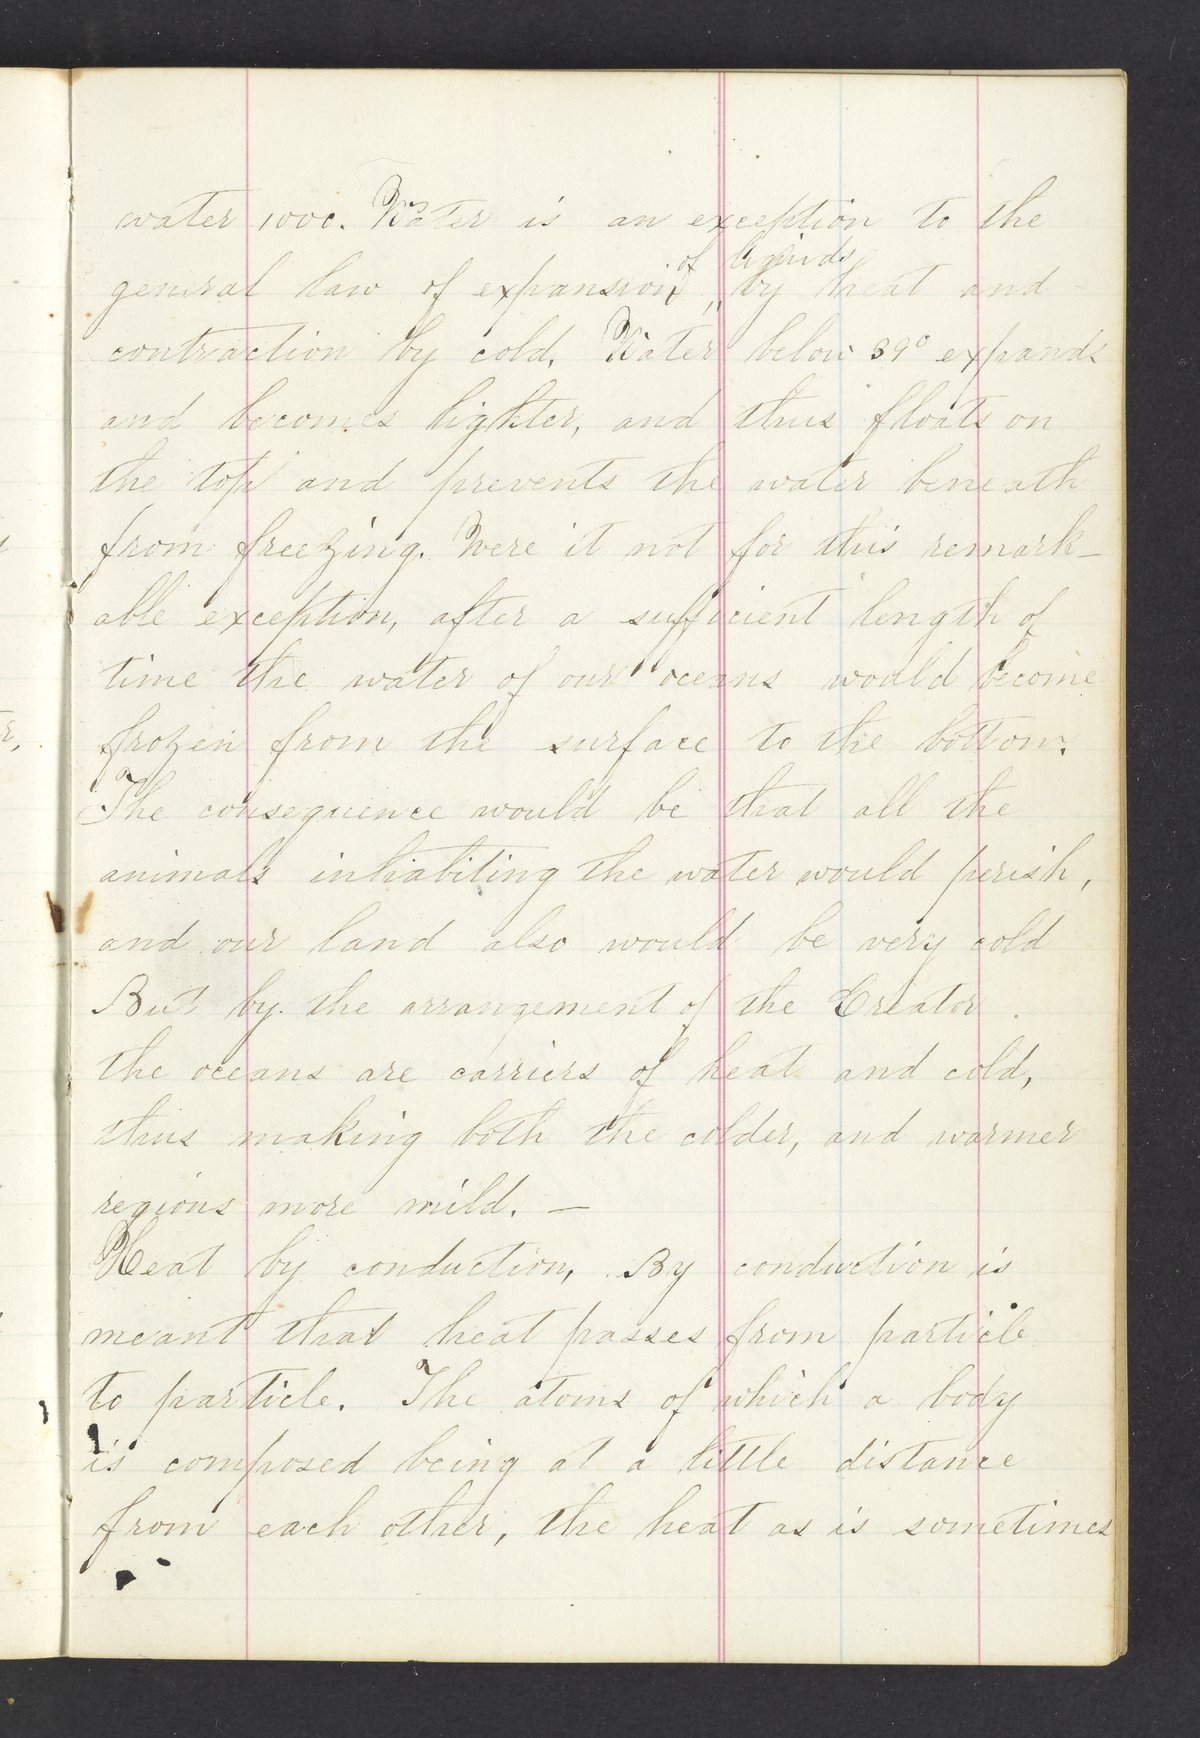 water 1000. Water is an exception to the
of liquids
general law of expansion, by heat and
contraction by cold. Water below 39° expands
and becomes lighter, and thus floats on
the top and prevents the water beneath
from freezing. Were it not for this remark-
able exception, after a sufficient length of
time the water of our oceans would become
frozen from the surface to the bottom.
The consequence would be that all the
animals inhabiting the water would perish,
and our land also would be very cold
But by the arrangement of the Creator
the oceans are carriers of heat and cold,
thus making both the colder, and warmer
regions more mild. —
Heat by conduction, By conduction is
meant that heat passes from particle
to particle. The atoms of which a body
is composed being at a little distance
from each other, the heat as is sometimes